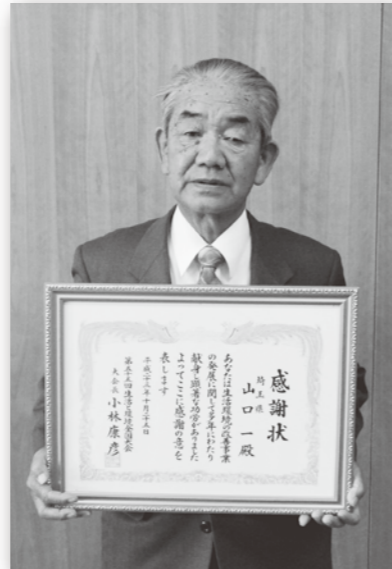 感謝状
埼玉県
山口一殿
あなたは生活環境の改善事業
の発展に関して多年にわたり
献身し顕著な功労がありました
よってここに感謝の意を
表します
平成二十三年十月二十五日
第五十五回生活と環境全国大会
大会長 小林康彦